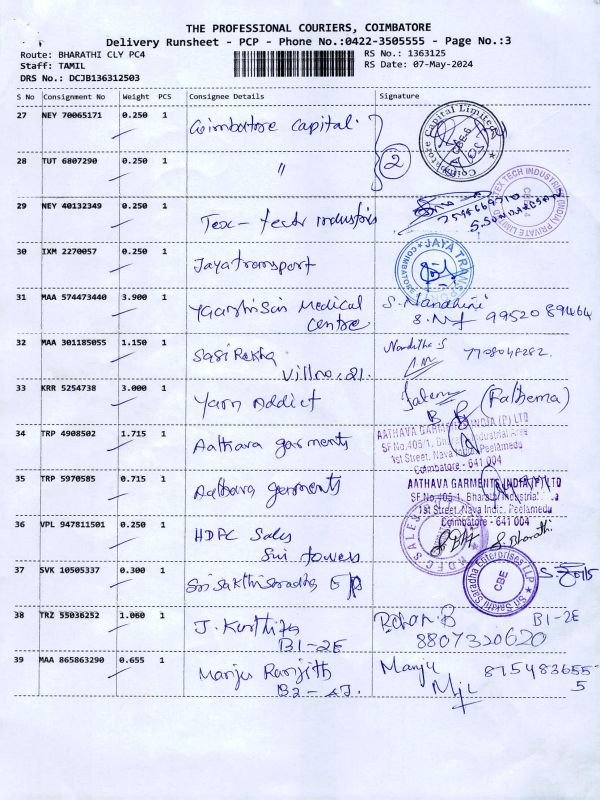 THE PROFESSIONAL COURIERS, COIMBATORE
Delivery Runsheet - PCP - Phone No.:0422-3505555 - Page No.:3
Route: BHARATHI CLY PC4
RS No.: 1363125
Staff: TAMIL
RS Date: 07-May-2024
DRS No.: DCJB136312503
S No Consignment No Weight PCS Consignee Details Signature
27 NEY 70065171 0.250 1 Coimbatore Capital.
Coimbatore Capital Limited
CBE-6
28 TUT 6807290 0.250 1 "
2
29 NEY 40132349 0.250 1 Tex-Tech Industries
30 IXM 2270057 0.250 1 Jayatransport
JAYA TRAN
COIMBATORE
31 MAA 574473440 3.900 1 Medical
Centre
S. Nandhini
99520 89464
32 MAA 301185055 1.150 1 Sasi Rekha
Villno. 21.
Nanditha S
7708048282.
33 KRR 5254738 3.000 1 Yarn Addict
(Fathema)
34 TRP 4908502 1.715 1 Aathava garments
AATHAVA GARMENTS INDIA (P) LTD
SF No.405/1, Bharathi Industrial Area
1st Street, Nava India, Peelamedu
Coimbatore - 641 004
35 TRP 5970585 0.715 1 Aathava garments
AATHAVA GARMENTS INDIA (P) LTD
SF No.405/1, Bharathi Industrial
1st Street, Nava India, Peelamedu
Coimbatore - 641 004
36 VPL 947811501 0.250 1 HDFC Sales
Sri towers
S. Bharathi
37 SVK 10505337 0.300 1 Sri sakthi saradha
Sri Sakthi Saradha Enterprises LLP
CBE
38 TRZ 55036252 1.060 1 J. Karthika
B1-2E
Rohan.B B1-2E
8807320620
39 MAA 865863290 0.655 1 Manju Ranjith
Manju 875483655
5